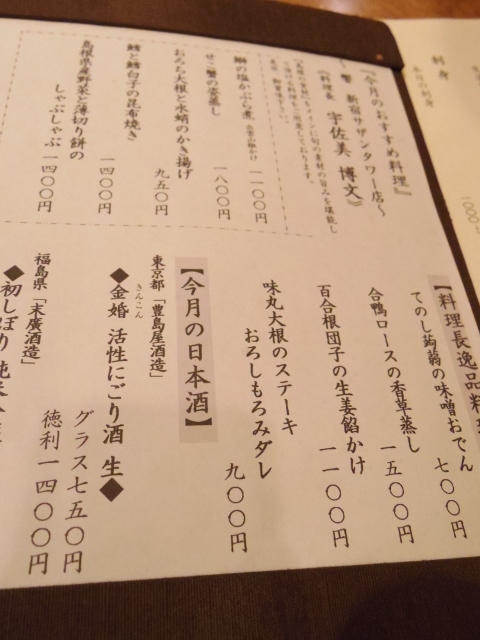 刺身
本日の刺身
『今月のおすすめ料理』
～響 新宿サザンタワー店～
《料理長 宇佐美 博文》
鰤の塩かぶら煮
一一〇〇円
せこ蟹の姿蒸し
一八〇〇円
おろち大根と水蛸のかき揚げ
九五〇円
鱈と鱈白子の昆布焼き
一四〇〇円
島根県産野菜と薄切り餅の
しゃぶしゃぶ 一四〇〇円
【料理長逸品料理
てのし蒟蒻の味噌おでん
七〇〇円
合鴨ロースの香草蒸し
一五〇〇円
百合根団子の生姜餡かけ
一一〇〇円
味丸大根のステーキ
おろしもろみダレ
九〇〇円
【今月の日本酒】
東京都「豊島屋酒造」
◆金婚 活性にごり酒 生◆
きんこん
グラス七五〇円
徳利一四〇〇円
福島県「末廣酒造」
◆初しぼり 純米